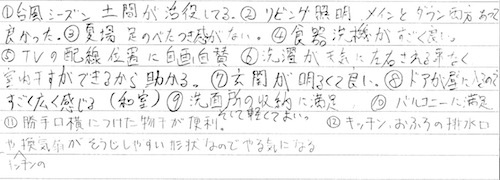 ①台風シーズン 土間が活役してる。② リビング照明 メインとダウン両方あって
良かった。③夏場 足のべたつき感がない。④食器洗機がすごく良い。
⑤TVの配線位置に自画自賛 ⑥洗濯が天気に左右される事なく
室内干すができるから助かる。⑦玄関が明るくて良い。⑧ドアが
すごく広く感じる(和室)⑨洗面所の収納に満足 ⑩バルコニーに満足
そして軽くてよい。
⑪勝手口横につけた物干が便利。 ⑫キッチン、おふろの排水口
や換気扇がそうじしやすい形状なのでやる気になる
キッチンの